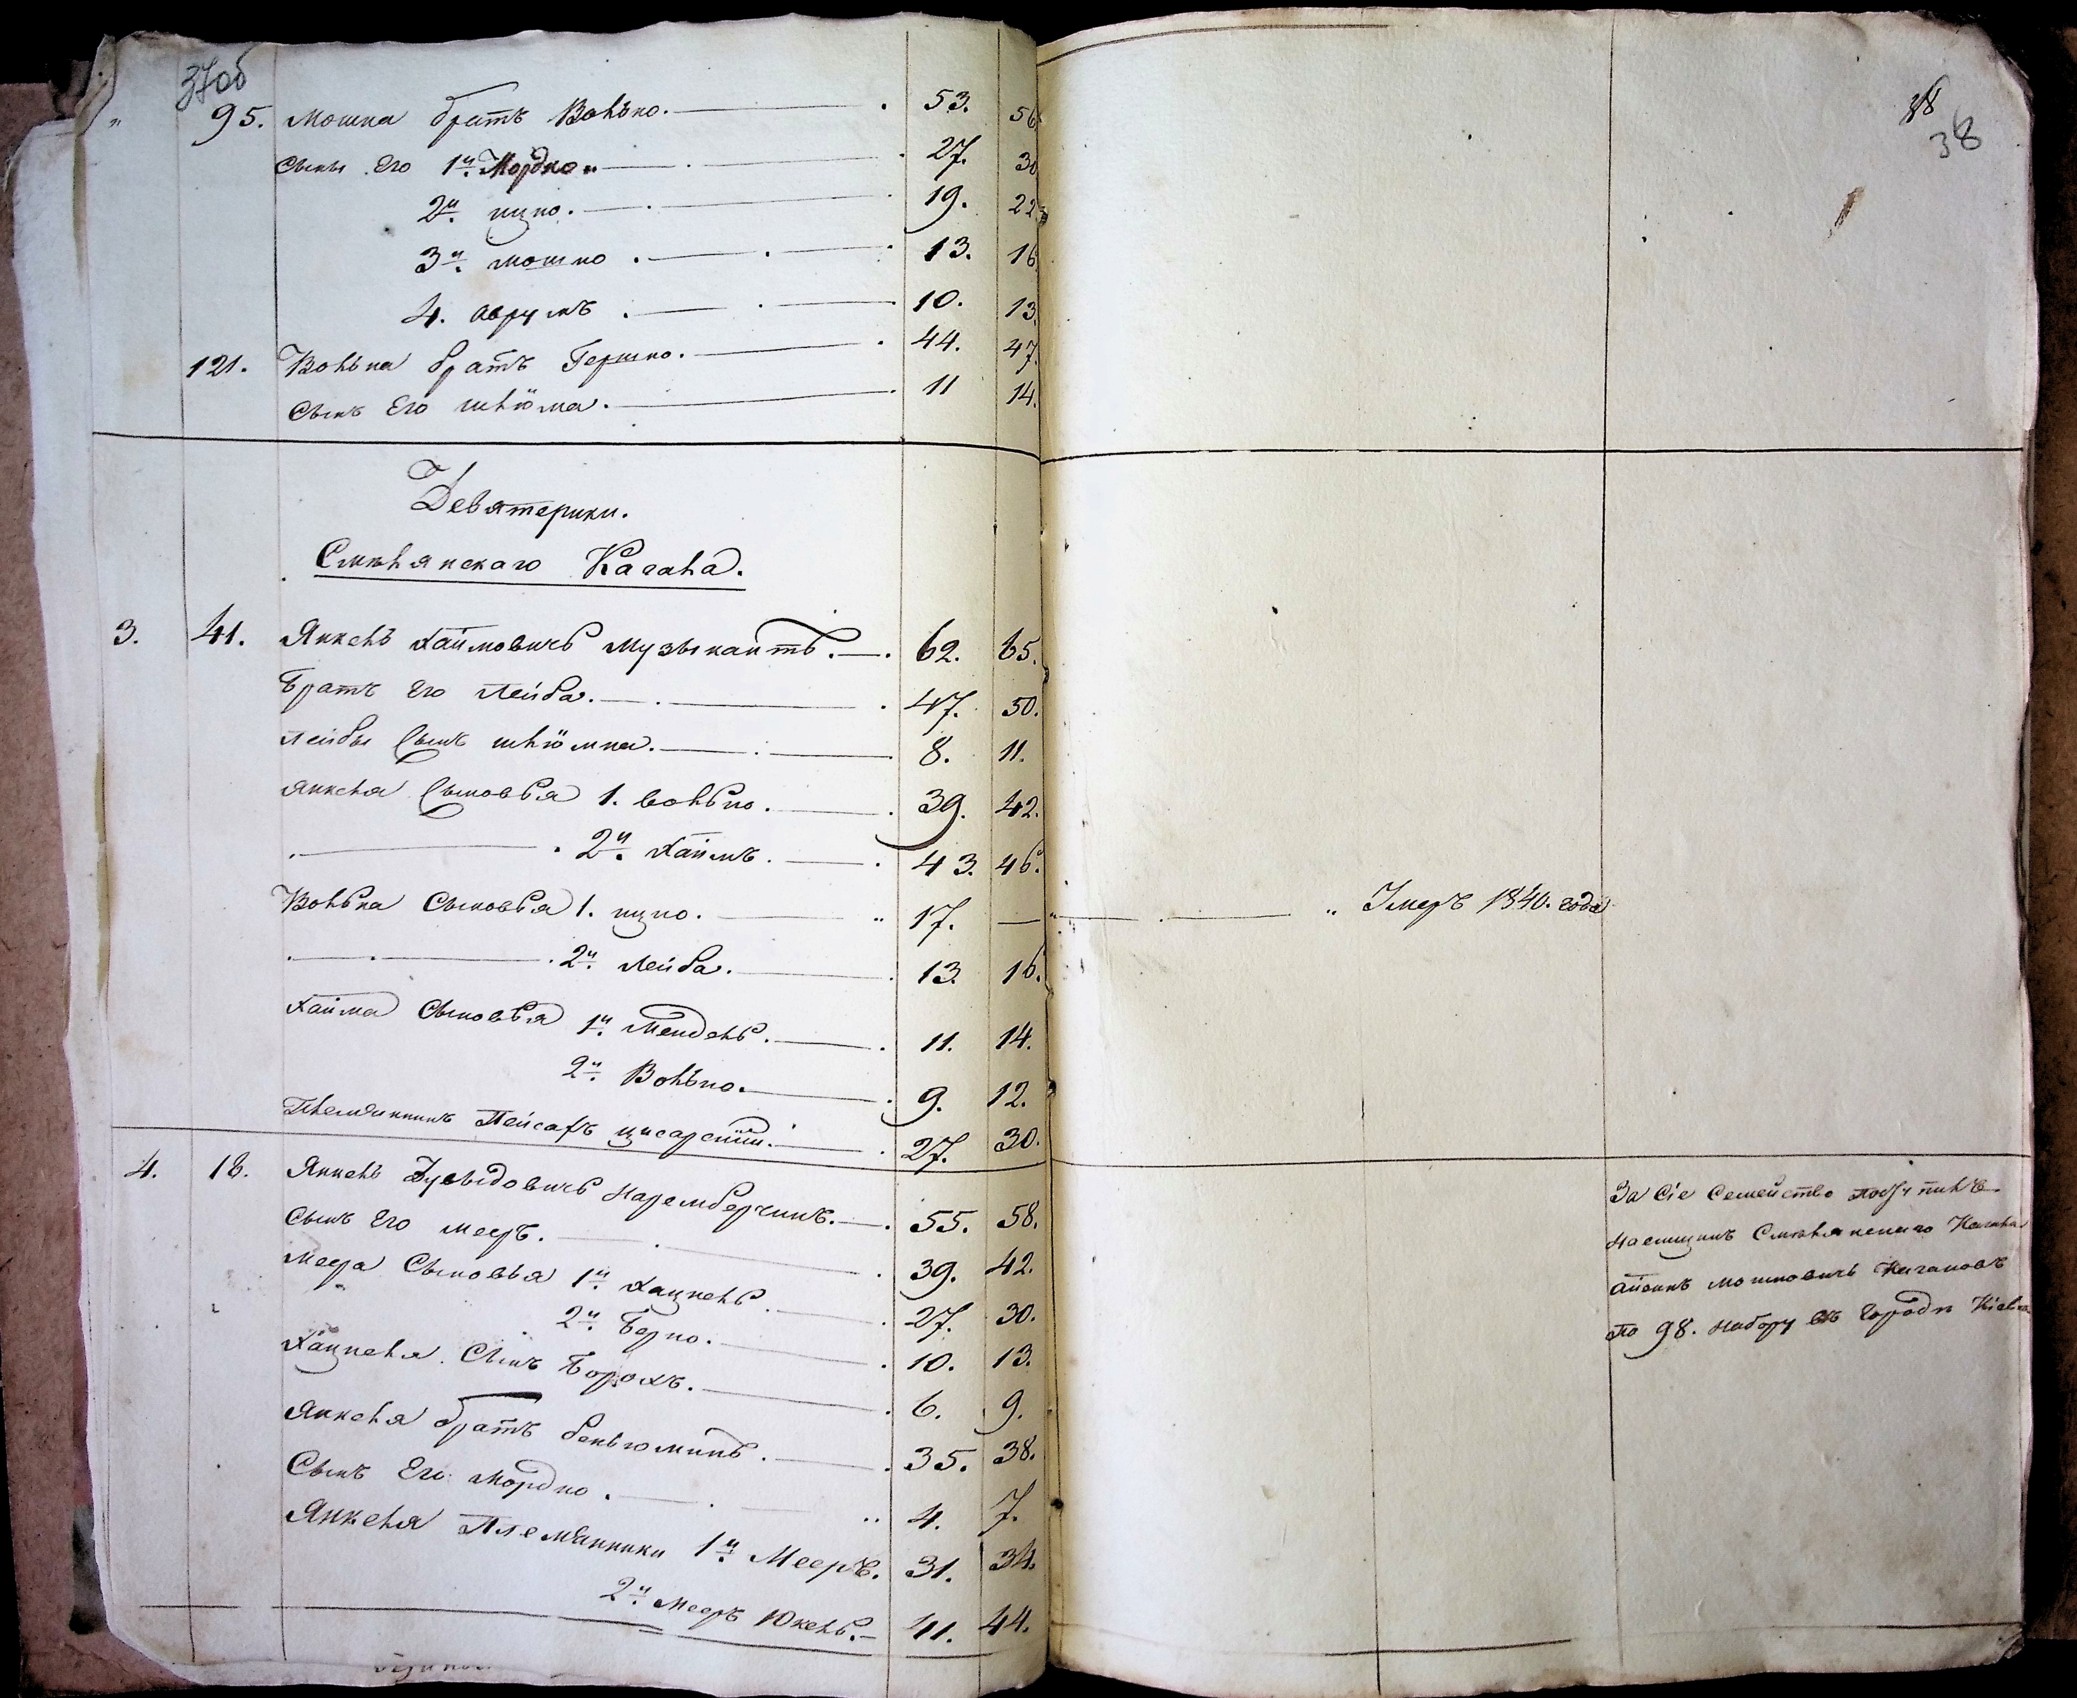 37об
95. Мошка братъ Волько. 53. 56
сыны его 1й Мордко 27. 30
2й ицко. 19. 22
3й мошко. 13. 16
4. аврумъ. 10. 13.
121. Волька братъ Гершко. 44. 47.
сынъ Его шлiома. 11 14.
Девятерики.
Смѣлянскаго Кагала.
3. 41. Янкель хаимовичь музыкантъ. 62. 65.
братъ его Лейба. 47. 50.
лейбы сынъ шлiомка. 8. 11.
янкеля сыновья 1. волько. 39. 42.
2й хаимъ. 43. 46.
Волька сыновья 1. ицко. 17. —
2й Лейба. 13. 16.
хаима сыновья 1й Мендель. 11. 14.
2й Волько. 9. 12.
племянникъ Пейсахъ 27. 30.
4. 18. Янкель 55. 58.
сынъ его мееръ. 39. 42.
меера сыновья 1й хацкель. 27. 30.
2й берко. 10. 13.
хацкеля сынъ борохъ. 6. 9.
янкеля братъ беньюминъ. 35. 38.
сынъ Его мордко. 4. 7.
янкеля племянники 1й Мееръ. 31. 34.
2й мееръ Юкель. 41. 44.
38
38
Умеръ 1840. года
За сіе семейство поступилъ
наемщикъ Смѣлянскаго Кагала
айзикъ мошковичь
по 98. набору въ городѣ Кіевѣ